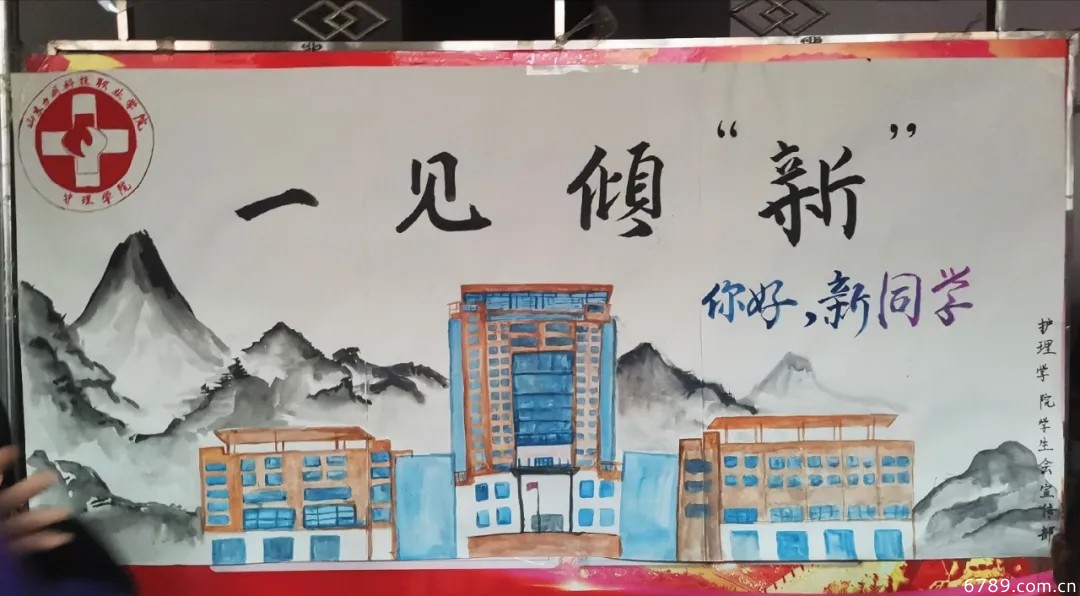 山东力明科技职业学院
护理学院
一见倾“新”
你好,新同学
护理学院学生会宣传部
6789.com.cn